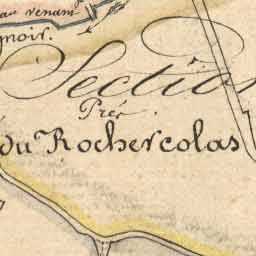 au venam
noir.
Section
Près
du Rochercolas